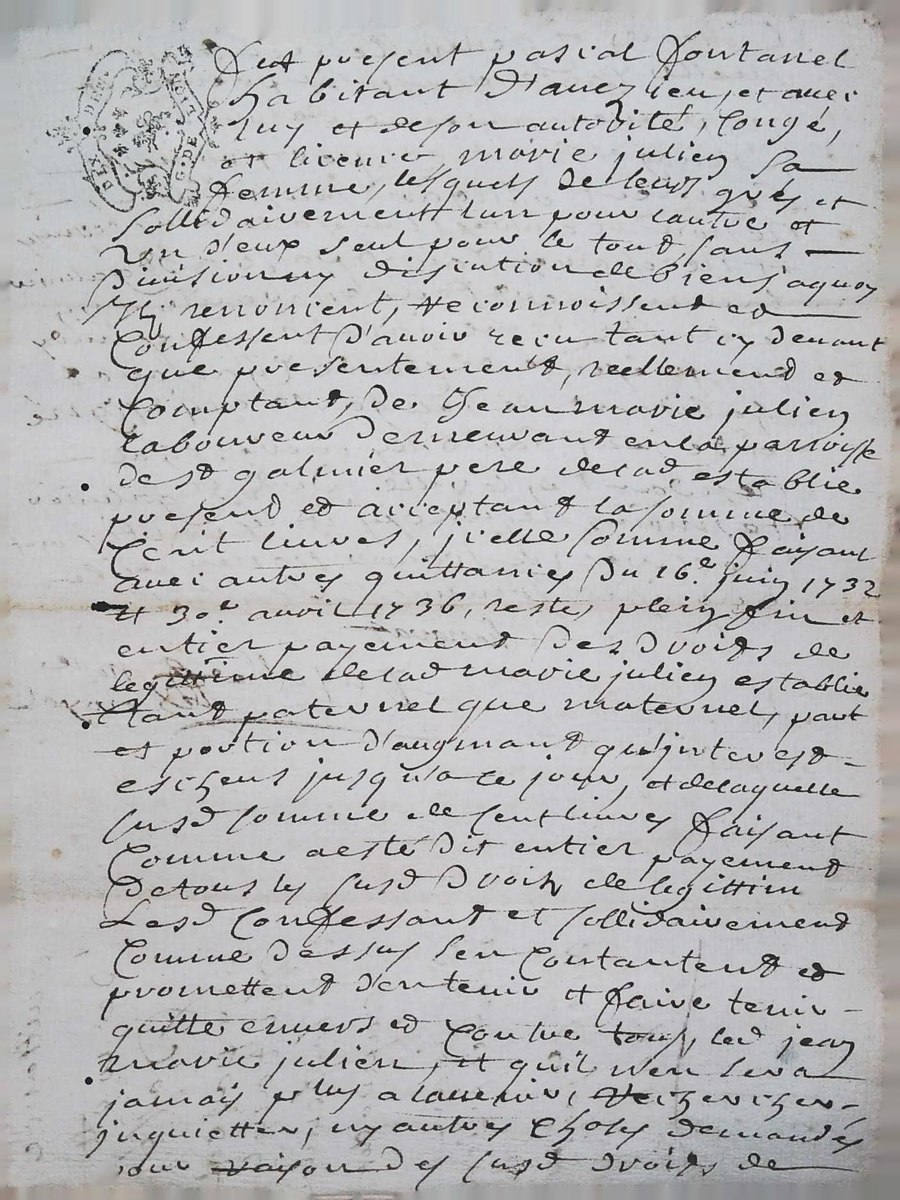 DEUX DEN. G. DE LION
fut present pascal fontanel
habitant d'auezieu, et auec
luy et de son autorité, Congé,
et licence marie julien sa
femme, lesquels de leurs grés et
sollidairement lun pour lautre et
un d'eux seul pour le tout, sans
Diuision ny discution de biens aquoy
Ils renoncent, reconnoissent et
Confessent d'auoir receu tant cy deuant
que presentement, reellement et
Comptant, de Jean marie julien
Laboureur demeurant en la parroisse
de st galmier pere de lad. establie
present et acceptant la somme de
Cent liures, jcelle somme faisant
auec autres quittances du 16e juin 1732
et 30e auril 1736, reste, plein fin et
entier payement des droits de
legittime de lad marie julien establie
tant paternel que maternel, part
et portion d'augmant qu'jnterest
escheus jusqu'a ce jour, et de laquelle
susd somme de cent liures faisant
Comme a esté dit entier payement
De tous les susd droits de legittim
Lesd Confessant et sollidairement
Comme dessus sen Contantent et
promettent d'en tenir et faire tenir
quitte enuers et Contre tous, led jean
marie julien, et quil n'en sera
jamais plus alauenir, rechercher
jnquietter, ny autres choses demandés
pour raison des susd droits de